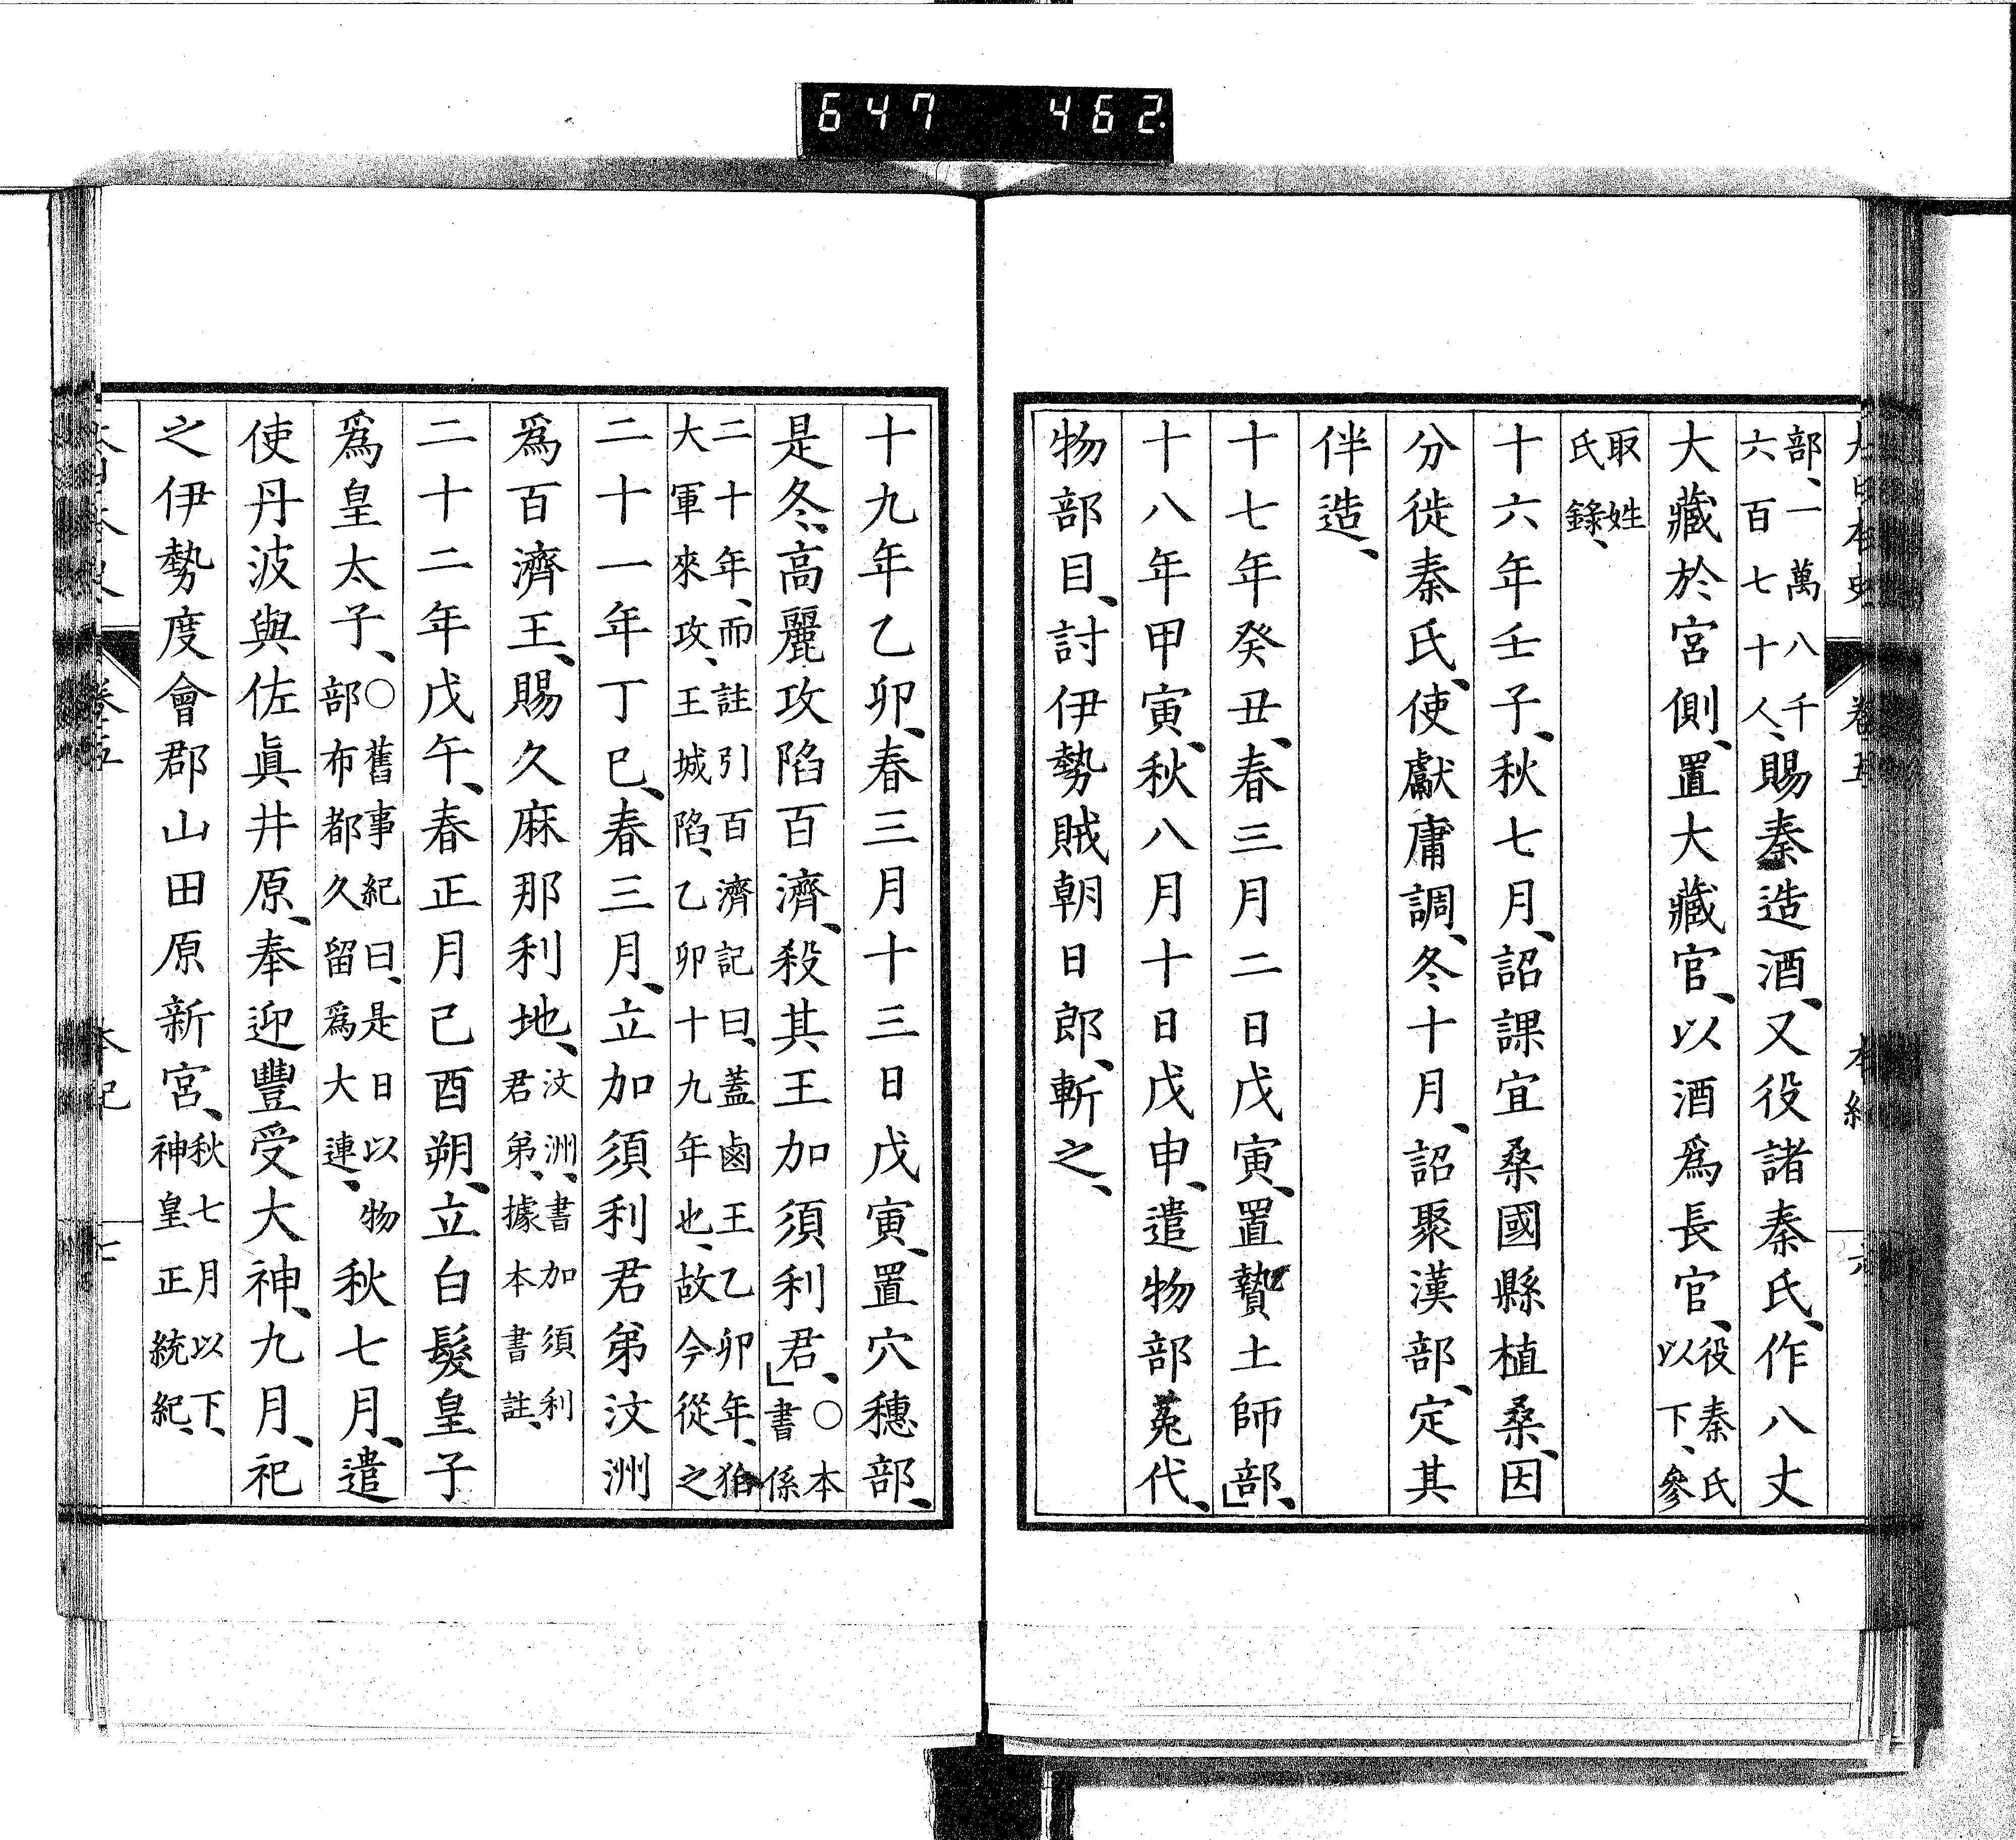 647 462
大日本史 卷五 本紀 六
部、一萬八千
六百七十人、賜秦造酒、又役諸秦氏、作八丈
大藏於宮側、置大藏官、以酒爲長官、役秦氏
以下、參
取姓
氏錄、
十六年壬子、秋七月、詔課宜桑國縣植桑、因
分徙秦氏、使獻庸調、冬十月、詔聚漢部、定其
伴造、
十七年癸丑、春三月二日戊寅、置贄土師部、
十八年甲寅、秋八月十日戊申、遣物部菟代、
物部目、討伊勢賊朝日郎、斬之、
十九年乙卯、春三月十三日戊寅、置穴穗部、
是冬、高麗攻陷百濟、殺其王加須利君、○本
書係
二十年、而註引百濟記曰、蓋鹵王乙卯年、狛
大軍來攻、王城陷、乙卯十九年也、故今從之
二十一年丁巳、春三月、立加須利君弟汶洲
爲百濟王、賜久麻那利地、汶洲、書加須利
君弟、據本書註、
二十二年戊午、春正月己酉朔、立白髮皇子
爲皇太子、○舊事紀曰、是日以物
部布都久留爲大連、秋七月、遣
使丹波與佐眞井原、奉迎豐受大神、九月、祀
之伊勢度會郡山田原新宮、秋七月以下、
神皇正統紀、
本紀